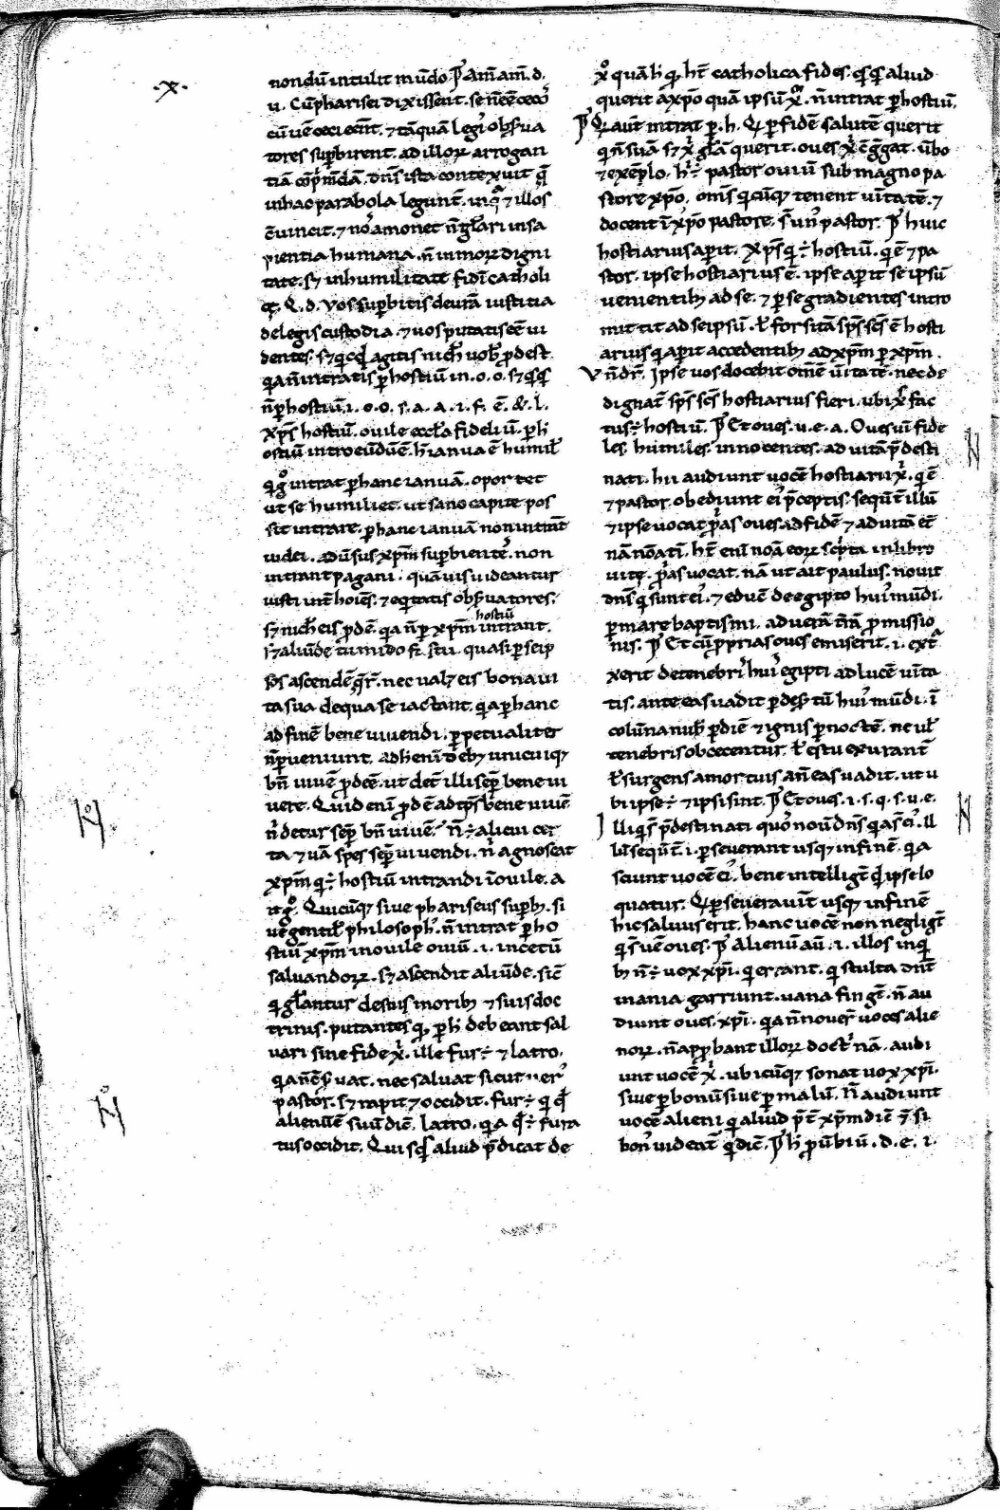 .x.
nondū intulit mūdo P̄ Am̄ am̄. d.
u. Cū pharisei dixissent. se n̄ eē cecos
cū uē ceci eēnt. ⁊ tāquā legis obserua
tores supbirent. ad illoꝝ arrogan
tiā cōp̄mdā. dn̄s ista contexuit q̄
in hac parabola legunt̄. in q̄ ⁊ illos
ēuincit. ⁊ nos amonet n̄ gl̄ari in sa
pientia humana. n̄ in moꝝ digni
tate. sꝫ in humilitate fidei catholi
cę. Q. d. Vos supbitis de ūra iustitia
de legis custodia. ⁊ uos putatis eē ui
dentes. sꝫ qcqd agitis nich uob pdest
q̇a n̄ intratis p hostiū in. o. o. sꝫ q̇sq̇s
n̄ p hostiū. i. o. o. s. a. a. i. f. ē. &. l.
xp̄s hostiū. ouile eccl̄a fideliū. p h
ostiū introeūdū ē. h ianua ē humil
q̇ g° intrat p hanc ianuā. oportet
ut se humiliet. ut sano capite pos
sit intrare. p hanc ianuā non intn̄t
iudei. aduersus xp̄m supbientes. non
intrant pagani. quāuis uideantur
iusti int̄ hoies. ⁊ eq̇tatis obseruatores.
hostiū
sꝫ nich eis pdē. q̇a n̄ p xp̄m intrant.
sꝫ aliūde tumido fastu. quasi p seip
sos ascendē q̄r̄. nec ualꝫ eis bona ui
ta sua de qua se iactant. q̇a p hanc
ad finē bene uiuendi. ppetualiter
n̄ pueniunt. ad h eni debꝫ unicuiqꝫ
bn̄ uiuē pdeē. ut det̄ illi semp bene ui
uere. Quid eni pdē ad tp̄s bene uiuē
n̄ detur semp bn̄ uiuē. N̄ ÷ alicui cer
ta ⁊ uā spes semp uiuendi. n̄ agnoscat
xp̄m q̇ ÷ hostiū intrandi ī ouile. a
it g°. Quicūqꝫ siue phariseus supb. si
ue gentil philosoph. n̄ intrat p ho
stiū xp̄m in ouile ouiū. i. in cetū
saluandoꝝ. sꝫ ascendit aliūde. sic̄
q̇ gl̄antur de suis moribꝫ ⁊ suis doc
trinis. putantes q̇. p h debeant sal
uari sine fide x̄. ille fur ÷ ⁊ latro.
q̇a n̄ seruat. nec saluat sicut uer
pastor. sꝫ rapit ⁊ occidit. Fur ÷ q̇ qd
alienū ē suū diē. latro. q̇a qd ÷ fura
tus occidit. Quisq̇s aliud p̄dicat de
x̄ quā h q̇ ht̄ catholica fides. q̇sq̇s aliud
querit a xp̄o quā ipsū x̄. n̄ intrat p hostiū.
P̄ Q̇ aūt intrat p. h. Q̇ p fidē salutē querit
q̇ n̄ suā sꝫ x̄ gl̄am querit. oues x̄ cg̅gat. ūbo
⁊ exēplo. h ÷ pastor ouiū sub magno pa
store xp̄o. om̄s q̇cūqꝫ tenent ūitatē. ⁊
docent ī xp̄o pastore. s̄ un pastor. P̄ huic
hostiarius apit. Xp̄s q̇ ÷ hostiū. q̇ ē ⁊ pa
stor. ipse hostiarius ē. ipse apit se ipsū
uenientibꝫ ad se. ⁊ p se gradientes intro
mittit ad seipsū. ł forsitā sp̄s sc̄s ē hosti
arius q̇ apit accedentibꝫ ad xp̄m p xp̄m.
Vn̄ dr̄. Ipse uos docebit om̄ē ūitatē. nec de
dignat̄ sp̄s sc̄s hostiarius fieri. ubi x̄ fac
tus ÷ hostiū. P̄ Et oues. u. e. a. Oues uī fide
les. humiles. innocentes. ad uitā p̄desti
nati. hii audiunt uocē hostiarii x̄. q̇ ē
⁊ pastor. obediunt ei p̄ceptis. sequn̄t illū
⁊ ipse uocat p̄as oues ad fidē ⁊ ad uitā et̄
nā nōatī. ht̄ enī noā eoꝝ sc̄pta in libro
uitę. p̄as uocat. nā ut ait paulus. nouit
dn̄s q̇ sunt ei. ⁊ educē de egipto hui mūdi.
p mare baptismi. ad uerā t̄rā pmissio
nis. P̄ Et cū pprias oues emiserit. i. ext̄
xerit de tenebris hui egipti ad lucē ūita
tis. ante eas uadit p deser tū hui mūdi. ī
colūna nub p diē ⁊ ignis p noctē. ne ul
tenebris obcecentur. ł estu exurant̄
ł surgens a mortuis an̄ eas uadit. ut u
bi ipse ÷ ⁊ ipsi sint. P̄ Et oues. i. s. q. s. u. e.
Illi q̇ s̄ p̄destinati quos nouit dn̄s q̇a s̄ ei. il
lū sequn̄t. i. pseuerant usqꝫ in finē. q̇a
sciunt uocē ei. bene intelligt̄ qd ipse lo
quatur. Q̇ pseuerauit̄ usqꝫ in finē
hic saluus erit. hanc uocē non negligt̄
q̇ s̄ uē oues. P̄ Alienū aū. i. illos in q̇
bꝫ n̄ ÷ uox xp̄i. q̇ errant. q̇ stulta dn̄t
inania garriunt. uana fingt̄. n̄ au
diunt oues. xp̄i. q̇a n̄ nouer̄ uoces alie
noꝝ. n̄ appbant illoꝝ doctrinā. audi
unt uocē x̄. ubicūqꝫ sonat uox xp̄i.
siue p bonū siue p malū. N̄ audiunt
uocē alieni q̇ aliud p̄t̄ xp̄m diē ⁊ si
bon uideat̄ q̇d diē. P̄ h puerbiū. d. e. i.